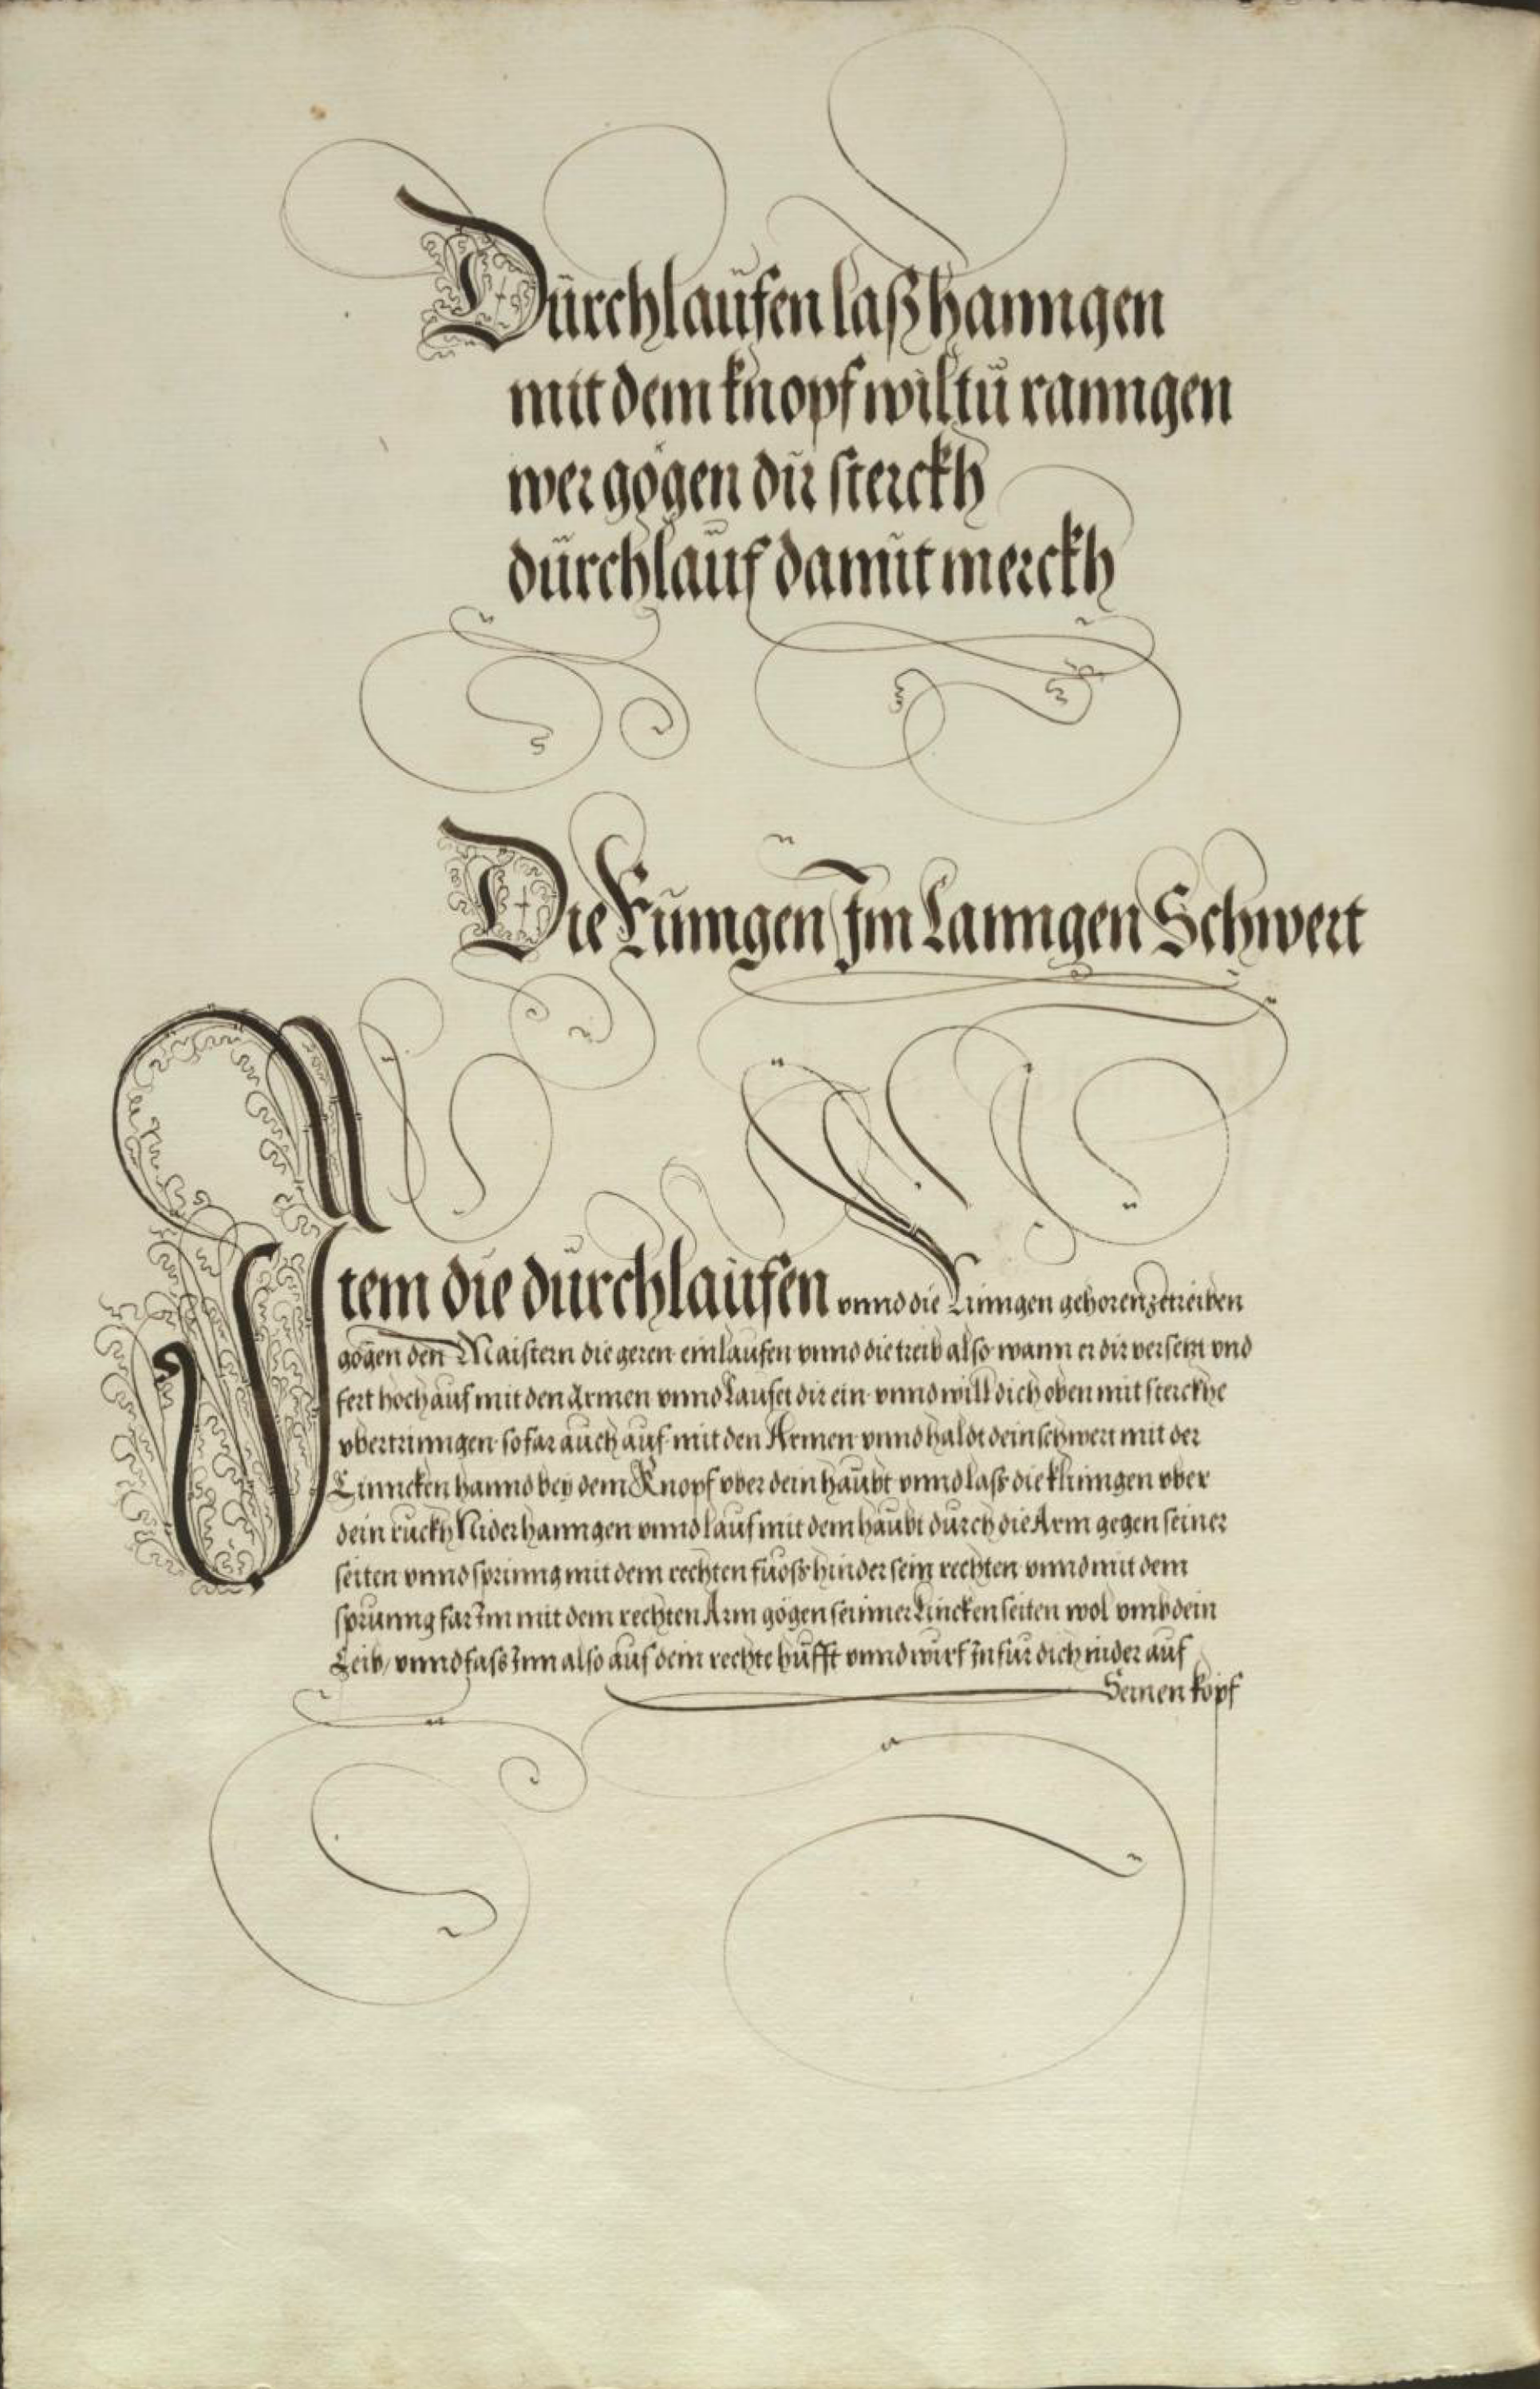 Dürchlaüfen laß hanngen
mit dem knopf wiltü ranngen
wer gögen dir sterckh
dürchlaüf damit merckh
Die Rinngen Im Lanngen Schwert
Item die dürchlaüfen vnnd die Rinngen gehoren zetreiben
gögen den Maistern die geren einlaufen vnnd die treib also wann er dir versetzt vnd
fert hoch auf mit den Armen vnnd laufet dir ein vnnd will dich oben mit sterckhe
vbertrinngen so far aüch auf mit den Armen vnnd haldt dein schwert mit der
Linncken hannd bey dem Knopf vber dein haübt vnnd lass die klinngen vber
dein ruckh Nider hanngen vnnd lauf mit dem haübt durch die Arm gegen seiner
seiten vnnd sprinng mit dem rechten fuoss hinder sein rechten vnnd mit dem
sprunng far Im mit dem rechten Arm gögen seinner Lincken seiten wol vmb dein
Leib, vnnd fass Inn also auf dein rechte hüfft vnnd würf In für dich nider auf
Seinen kopf